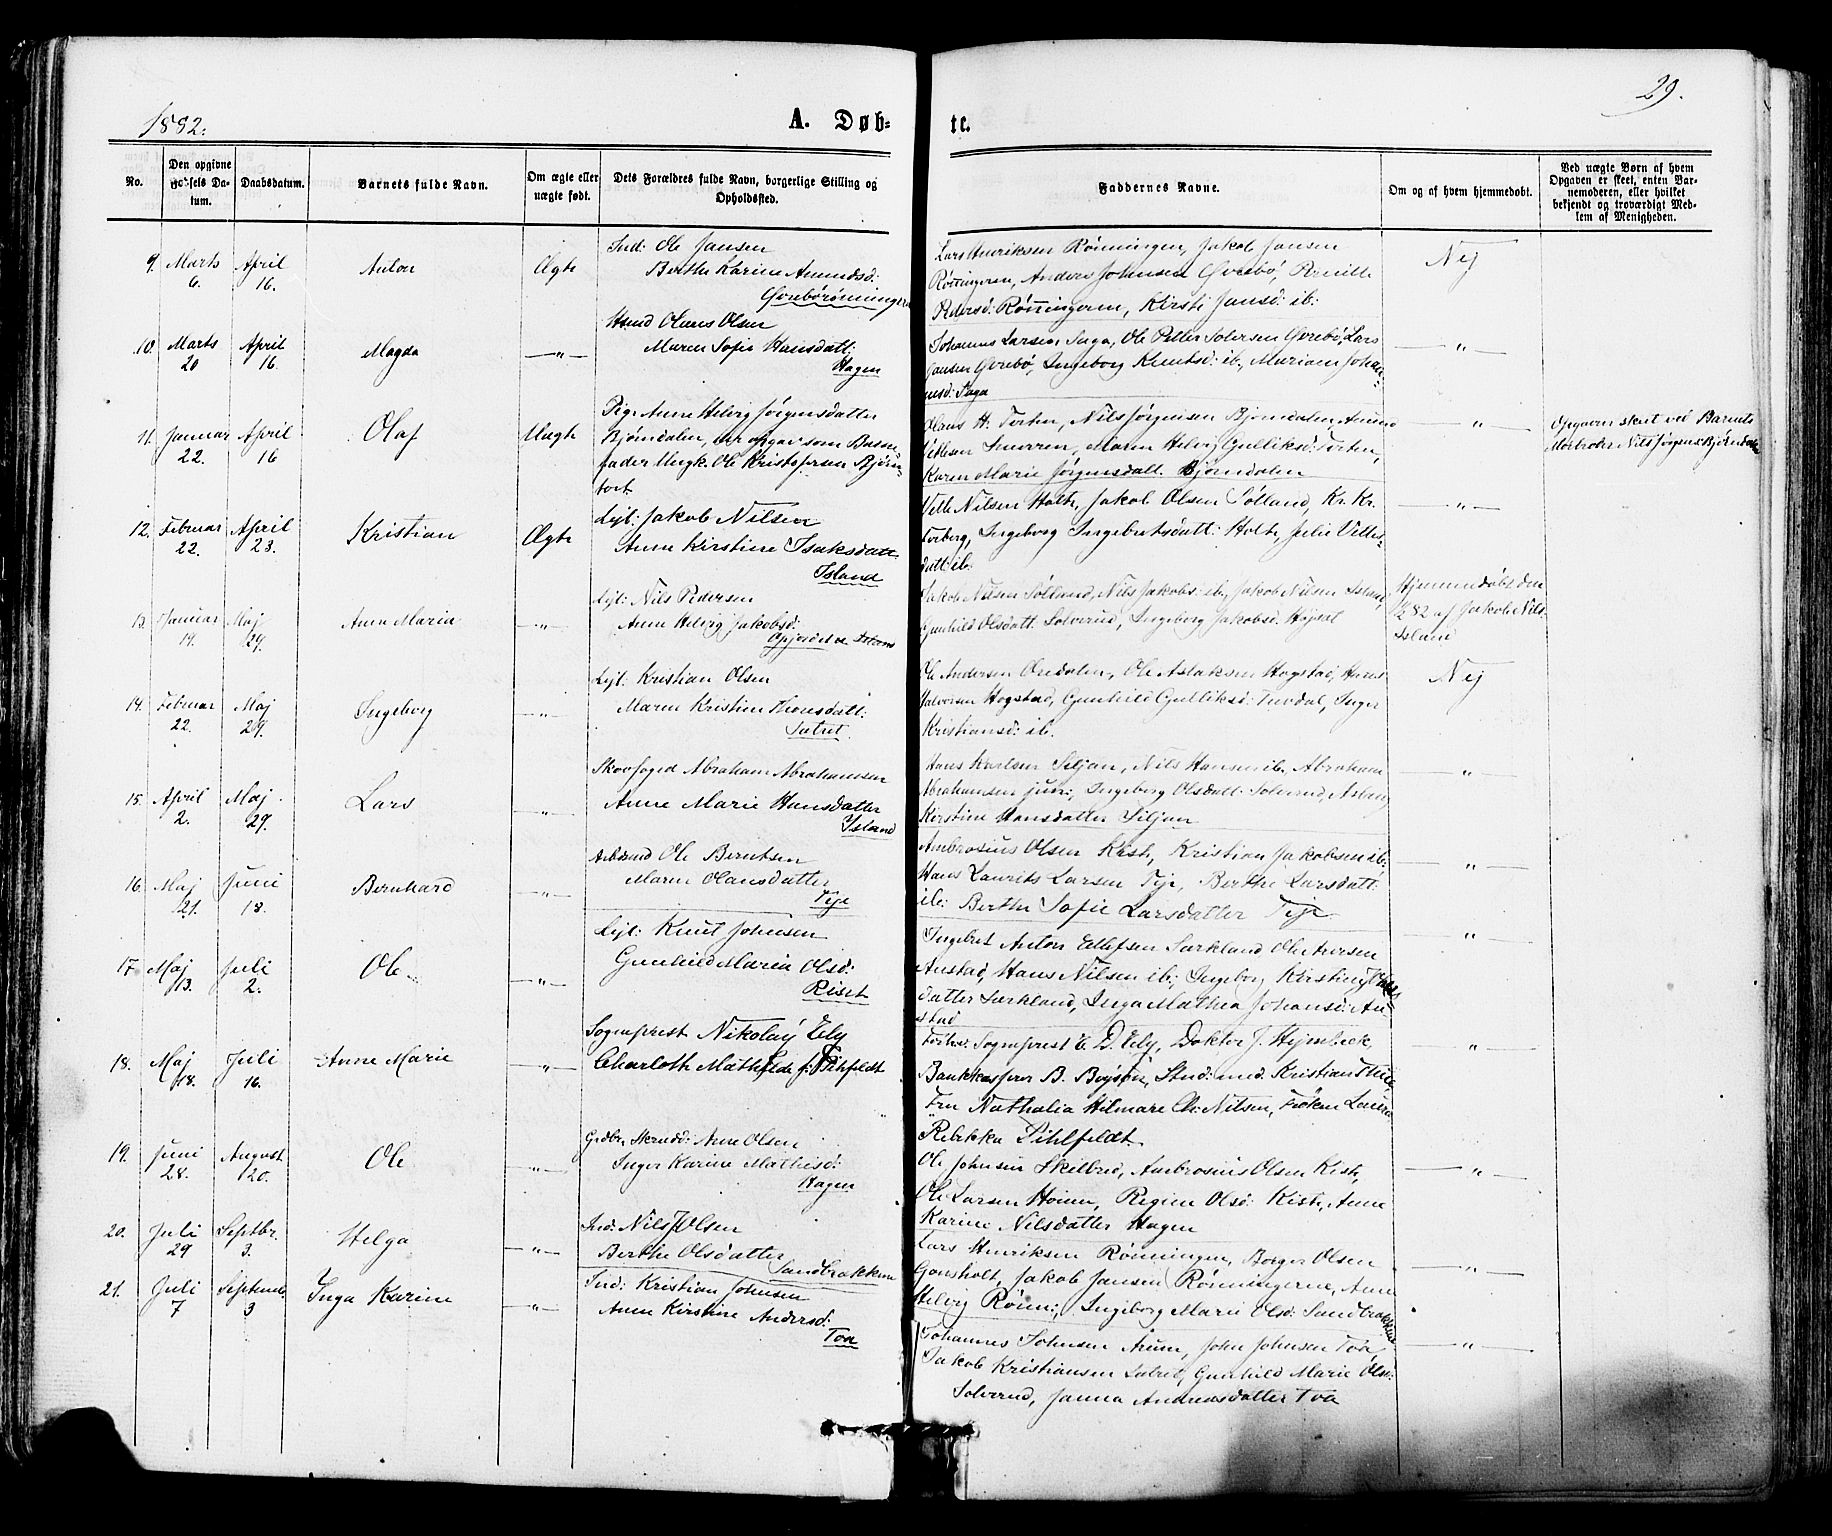 1882.
A. Døb-
te.
29.
No.
Den opgivne Fødsels Datum.
Daabsdatum.
Barnets fulde Navn.
Om ægte eller uægte født.
Dets Forældres fulde Navn, borgerlige Stilling og Opholdssted.
Faddernes Navne.
Om og af hvem hjemmedøbt.
Ved uægte Børn af hvem Opgaven er skeet, enten Barnemoderen, eller hvilket bekjendt og troværdigt Medlem af Menigheden.
9. Marts 6. April 16. Anton Ægte
Ind: Ole Jansen
Berthe Karine Amundsd:
Øvrebörönningen
Lars Henriksen Rönningen, Jakob Jansen
Rönningeren, Anders Johnsen Øvrebö, Pernille
Pedersd: Rönningeren, Kirsti Jansd: ib:
Nej
10. Marts 20 April 16. Magda —"—
Hsmd Olaves Olsen
Maren Sofie Hansdatt:
Hagen
Johannes Larsen Saga, Ole Petter Solersen Øvrebö, Lars
Jansen Øvrebö, Ingeborg Knutsd: ib., Mariam Johan-
nesd: Saga
—"—
11. Januar 22. April 16 Olaf Uægte
Pige Anne Helvig Jörgensdatter
Björndalen, der opgav som Barne-
fader Ungk. Ole Kristofersen Björn-
tort.
Olaus H. Torten, Nils Jörgensen Björndalen, Amund
Snerren, Maren Helvig Gulliksd: Torten,
Karen Marie Jörgensdatt. Björndalen
—"—
Opgaven skeet ved Barnets
Morbroder Nils Jörgens: Björndalen
12. Februar 22. April 23. Kristian Ægte
Lejl: Jakob Nilsen
Anne Kirstine Isaksdatt.
Island
Velle Nilsen Holte, Jakob Olsen Sölland, Kr. Kr.
Torberg, Ingeborg Ingebretsdatt: Holte, Julie Velles-
datt: ib:
—"—
13. Januar 14. Maj 29. Anne Maria —"—
Lejl: Nils Pedersen
Anne Helvig Jakobsd:
Island
Jakob Nilsen Sölland, Nils Jakobs: ib., Jakob Nilsen Island,
Gunhild Olsdatt: Solverud, Ingeborg Jakobsd. Höjset
Hjemmedöbt den
82 af Jakob Nils.
Island
14. Februar 22. Maj 29. Ingeborg —"—
Lejl: Kristian Olsen
Maren Kristine Thonsdatt:
Sætret.
Ole Andersen Oredalen, Ole Aslaksen Hogstad, Hans
Halvorsen Hogstad, Gunhild Gulliksd: Tuvdal, Inger
Kristiansd: ib.
Nej
15. April 2. Maj 29. Lars —"—
Skovfoged Abraham Abrahamsen
Anne Marie Hansdatter
Island
Hans Karlsen Siljan, Nils Hansen ib., Abraham
Abrahamsen jun:, Ingeborg Olsdatt: Solverud,
Kirstine Hansdatter Siljan
"
16. Maj 21. Juni 18. Bernhard —"—
Arbmd Ole Berntsen
Maren Olansdatter
Teje
Ambrosius Olsen Kiste, Kristian Jakobsen ib:
Hans Laurits Larsen Teje, Berthe Larsdatt:
ib: Berthe Sofie Larsdatter Teje.
—"—
17. Maj 13. Juli 2. Ole —"—
Lejl: Knut Johnsen
Gunhild Maria Olsd:
Riset
Ingebret Anton Ellefsen Sarkland, Ole Aversen
Austad, Hans Nilsen ib., Ingeborg Kirstine Ols
datter Sarkland, Inga Mathea Johansd: Au-
stad
"
18. Maj 18. Juli 16. Anne Marie —"—
Sogneprest Nikolaÿ Ely
Charlothe Mathilde f: Pihlfeldt
Sogneprest E. D. Ely, Doktor J. Hjembæk,
Bankkasserer B. Boyson, Stud: med. Kristian Thue
Fru Nathalia Hilmare Ch: Nilsen, Fröken Laura
Rebekka Pihlfeldt.
—"—
19. Juni 28. August 20. Ole —"—
Grdbr. Skrædd: Arne Olsen
Inger Karine Mathisd:
Hagen
Ole Johnsen Skilbred, Ambrosius Olsen Kiste,
Ole Larsen Hoinen, Regine Olsd: Kiste, Anne
Karine Nilsdatter Hagen
—"—
20. Juli 29 Septbr. 3. Helga —"—
Ind: Nils J. Olsen
Berthe Olsdatter
Sandbrækkene
Lars Henriksen Rönningen, Borger Olsen
Gonsholt, Jakob Jansen Rönningerne, Anne
Helvig Rönn:, Ingeborg Marie Olsd: Sandbrækkene
—"—
21. Juli 7 Septemb. 3 Inga Karine —"—
Ind: Kristian Johnsen
Anne Kirstine Andersd:
Toa
Johannes Johnsen Arum, John Johnsen Toa
Jakob Kristiansen Sætret, Gunhild Marie Ols:
Solverud, Janna Andreasdatter Toa
—"—